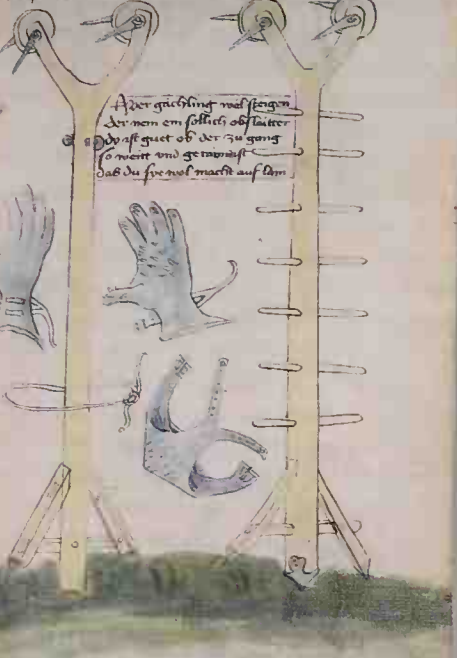 Wer gächling wel steigen
der nem ein sollich obslaitter
dy ist guet ob der zu gang
so weitt vnd
das du sye wol macht auf lain